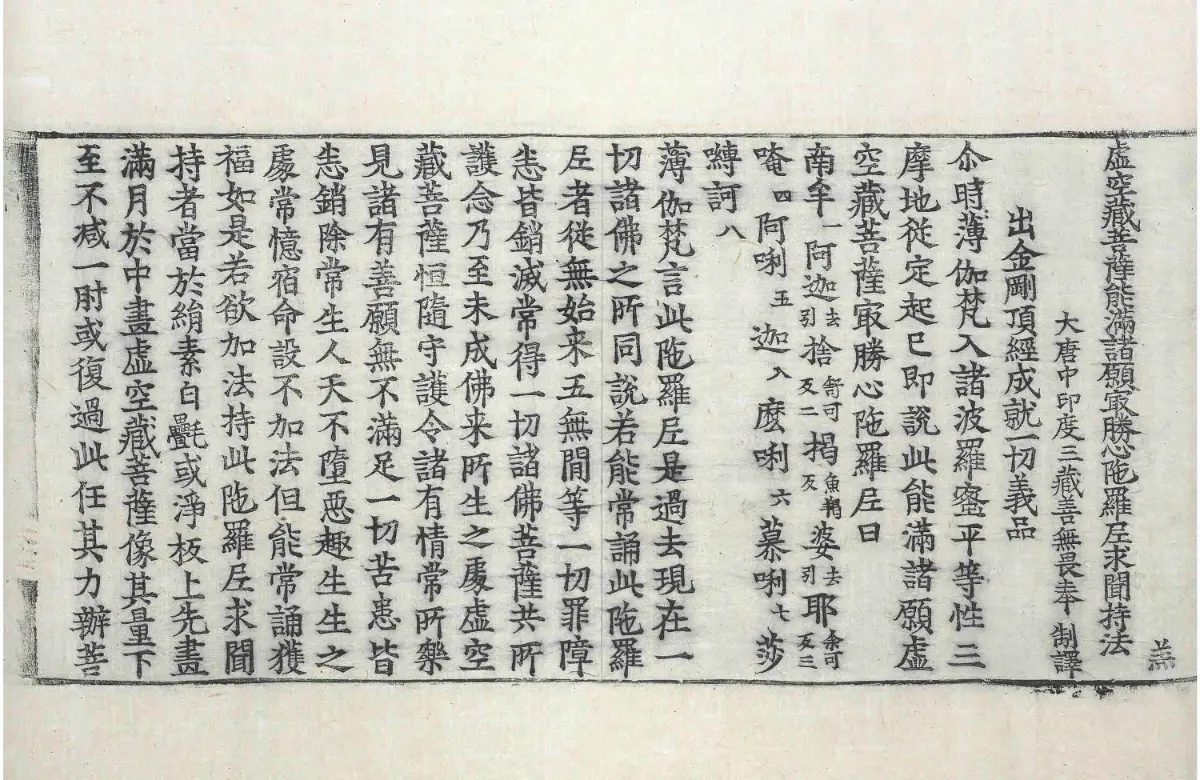 虛空藏菩薩能滿諸願㝡勝心陁羅尼求聞持法
羔
大唐中印度三藏善無畏奉 制譯
出金剛頂經成就一切義品
尒時薄伽梵入諸波羅蜜平等性三
摩地從定起已即說此能滿諸願虛
空藏菩薩㝡勝心陁羅尼曰
南牟一阿迦去引捨舒可反二揭魚羯反婆去引耶余可反三
唵四阿唎五迦入麽唎六慕唎七莎
嚩訶八
薄伽梵言此陁羅尼是過去現在一
切諸佛之所同說若能常誦此陁羅
尼者從無始来五無間等一切罪障
悉皆銷滅常得一切諸佛菩薩共所
護念乃至未成佛来所生之處虛空
藏菩薩恒隨守護令諸有情常所樂
見諸有善願無不滿足一切苦患皆
悉銷除常生人天不墮惡趣生生之
處常憶宿命設不加法但能常誦獲
福如是若欲加法持此陁羅尼求聞
持者當於絹素白㲲或淨板上先畫
滿月於中畫虛空藏菩薩像其量下
至不减一肘或復過此任其力辦菩